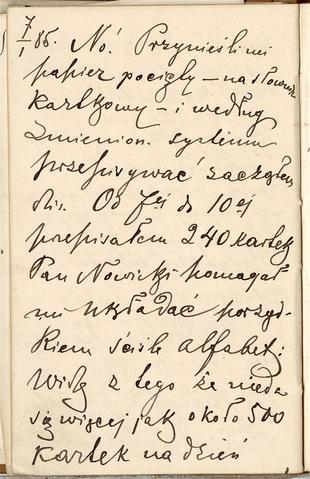 7/1 86. No! Przynieśli mi
papier pocięty – na słownik
kartkowy – i według
zmienion. systemu
przepisywać zacząłem
dziś. Od 7ej do 10ej
przepisałem 240 kartek
Pan Nowicki pomagał
mi układać porząd-
kiem ściśle alfabet:
Widzę z tego że nieda
się więcej jak około 500
kartek na dzień